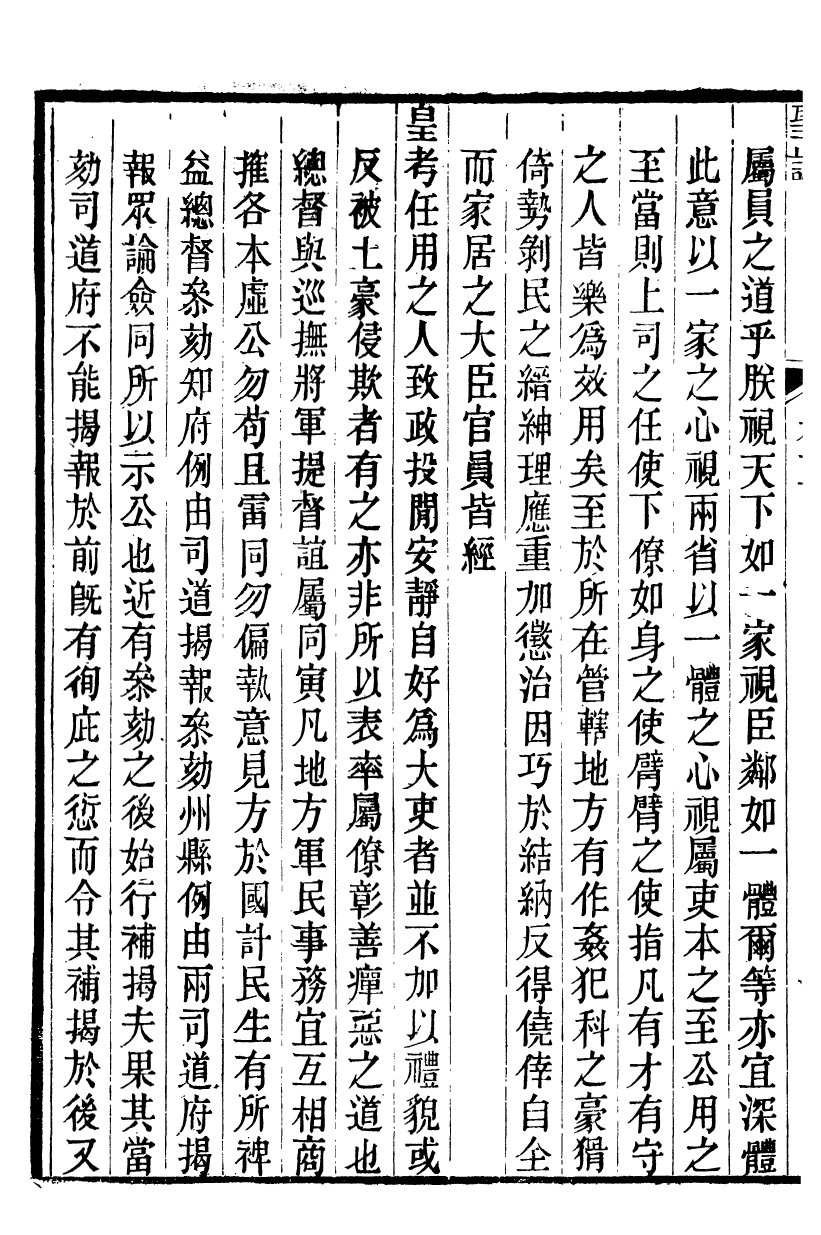 屬員之道乎朕視天下如一家視臣鄰如一體爾等亦宜深體
此意以一家之心視兩省以一體之心視屬吏本之至公用之
至當則上司之任使下僚如身之使臂臂之使指凡有才有守
之人皆樂爲效用矣至於所在管轄地方有作姦犯科之豪猾
倚勢剝民之縉紳理應重加懲治因巧於結納反得僥倖自全
而家居之大臣官員皆經
皇考任用之人致政投閒安靜自好爲大吏者並不加以禮貌或
反被土豪侵欺者有之亦非所以表率屬僚彰善癉惡之道也
總督與巡撫將軍提督誼屬同寅凡地方軍民事務宜互相商
摧各本虛公勿苟且雷同勿偏執意見方於國計民生有所裨
益總督叅劾知府例由司道揭報叅劾州縣例由兩司道府揭
報眾論僉同所以示公也近有叅劾之後始行補揭夫果其當
劾司道府不能揭報於前旣有徇庇之愆而令其補揭於後又